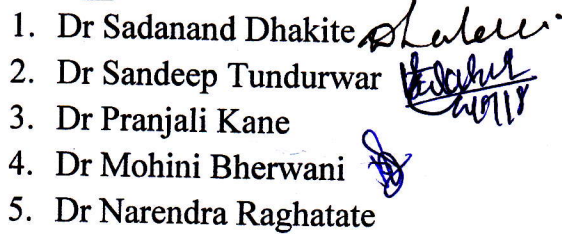 1. Dr Sadanand Dhakite
2. Dr Sandeep Tundurwar
3. Dr Pranjali Kane
4. Dr Mohini Bherwani
5. Dr Narendra Raghatate